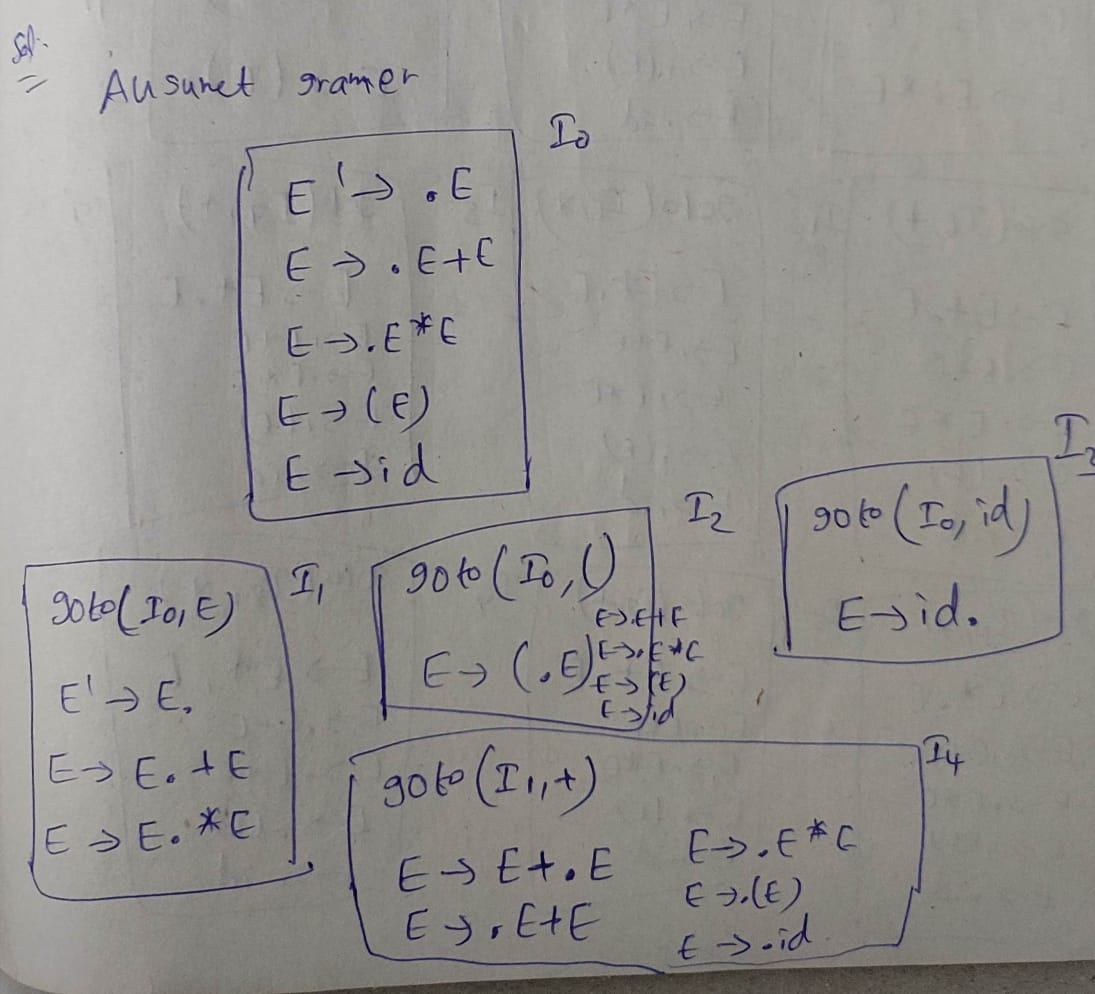 Sol:
Ausunet gramer
I0
E' → .E
E → .E+E
E → .E*E
E → (E)
E → id
I1
goto(I0, E)
E' → E.
E → E. + E
E → E. * E
I2
goto(I0, ()
E → (.E)
E → .E+E
E → .E*E
E → (E)
E → id
goto(I0, id)
E → id.
I4
goto(I1, +)
E → E+.E
E → .E+E
E → .E*E
E → .(E)
E → .id